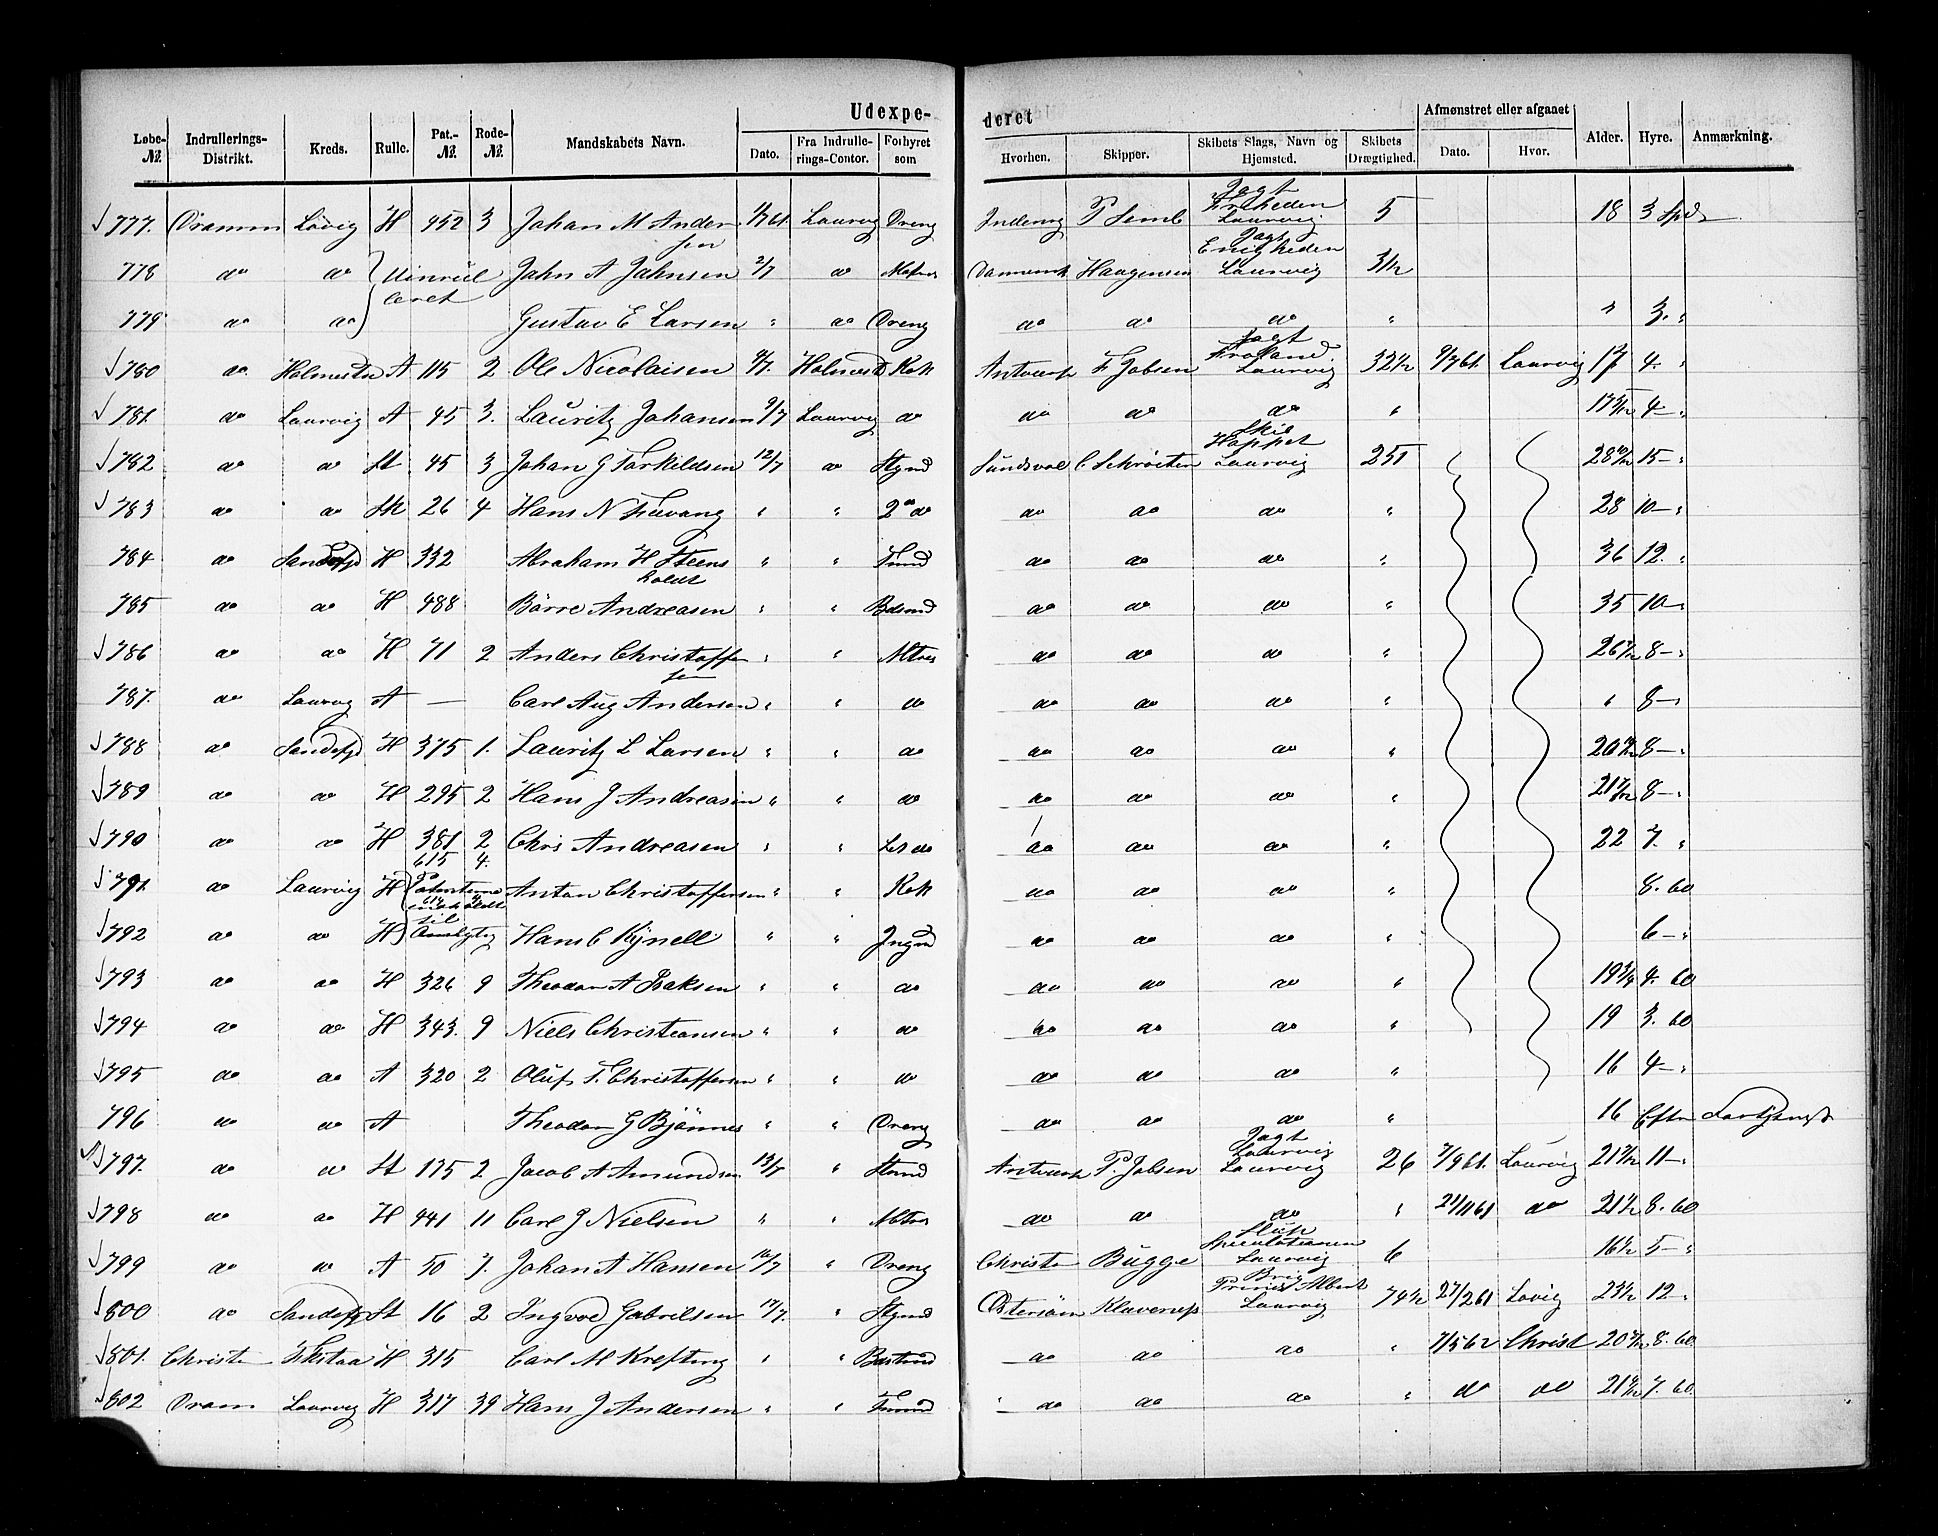 Udexpe-
deret
Løbe-№. Indrullerings-Distrikt. Kreds. Rulle. Pat.-№. Rode-№. Mandskabets Navn. Dato. Fra Indrulle-rings-Contor. Forhyret som Hvorhen. Skipper. Skibets Slags, Navn og Hjemsted. Skibets Drægtighed. Afmønstret eller afgaaet Dato. Hvor. Alder. Hyre. Anmærkning.
777. Dramm Lavig H 452 3 Johan M Andersen 1/7 61. Laurvig Dreng P Semb Jagt Friheden Laurvig 5 18 3 Spd
778 do do Uinrulleret Jahn A Jahnsen 2/7 do Matros Danmark Haagensen Jagt Enigheden Laurvig 3 1/2
779 do do Gustav E Larsen " do Dreng do do do " " 3. "
780 do Holmestr A 115 2 Ole Nicolaisen Holmest Kok Antverp F Jobsen Jagt Laurvig 32 1/2 9/7 61. Laurvig 17 4. "
781. do Laurvig A 45 3. Lauritz Johansen 9/7 Laurvig do do do do " 4 - "
782 do do St 45 3 Johan G Torkildsen 12/7 do Stymd Sundsval C Schrøeter Skib Happet Laurvig 251 15 - "
783 do do St 26 4 Hans N Fuvang " " 2 do do do do " 28 10 - "
784 do Sandefjd H 332 Abraham H Steensholdt " " Tmmd do do do " 36 12. "
785 do do H 488 Börre Andreasen " " do do do " 35 10 -
786 do do H 71 2 Anders Christoffersen " " Mtros do do do " 8 - "
787. do Laurvig A — Carl Aug Andersen " " do do do do " " 8 -
788 do Sandefjd H 375 1. Lauritz L Larsen " " do do do do " 8 - "
789 do do H 295 2 Hans J Andreasen " " do do do do " 8 - "
790 do do H 381 2 Chrs Andreasen " " Let do do do do " 22 7. "
791. do Laurvig H 615 4. Anton Christoffersen " " Kok do do do " 8. 60
792 do do H Hans C Kynell " " Jngmd do do do " 6 - "
793 do do H 326 9 Theodor A Isaksen " " do do do do " 19 3/4 4. 60
794 do do H 343. 9 Niels Christiansen " " do do do do " 19 3. 60
795 do do A 320 2 Oluf T. Christoffersen " " do do do do " 16 4 - "
796 do do A Theodor G Bjönnes " " Dreng do do do " 16 Efter Fortjeneste
797. do do St 175 2 Jacob A Amundsen 13/7 " Stmd Antverp P. Jobsen Jagt Laurvig Laurvig 26 7/9 61. Laurvig 11 - "
798 do do H 441 11 Carl J Nielsen " " Mtros do do do " 21/11 61 do 21 1/2 8. 60
799 do do A 50 7. Johan A Hansen 16/7 " Dreng Christa Bügge Slup Speculationen Laurvig 6 16 1/2 5 - "
800 do Sandefjd St 16 2 Ingvoe Gabrilsen 17/7. " Stymd Østersöen Klaverup Brig Prinds Albert Laurvig 74 1/2 Lavig 23 1/2 12 - "
801. Christa H 315 Carl M Krefting " " Bastmd do do do " 7/5 62 Christ 8. 60
802 Dram Laurvig H 317 39 Hans J Andersen " " Tmmd do do do " do do 7. 60